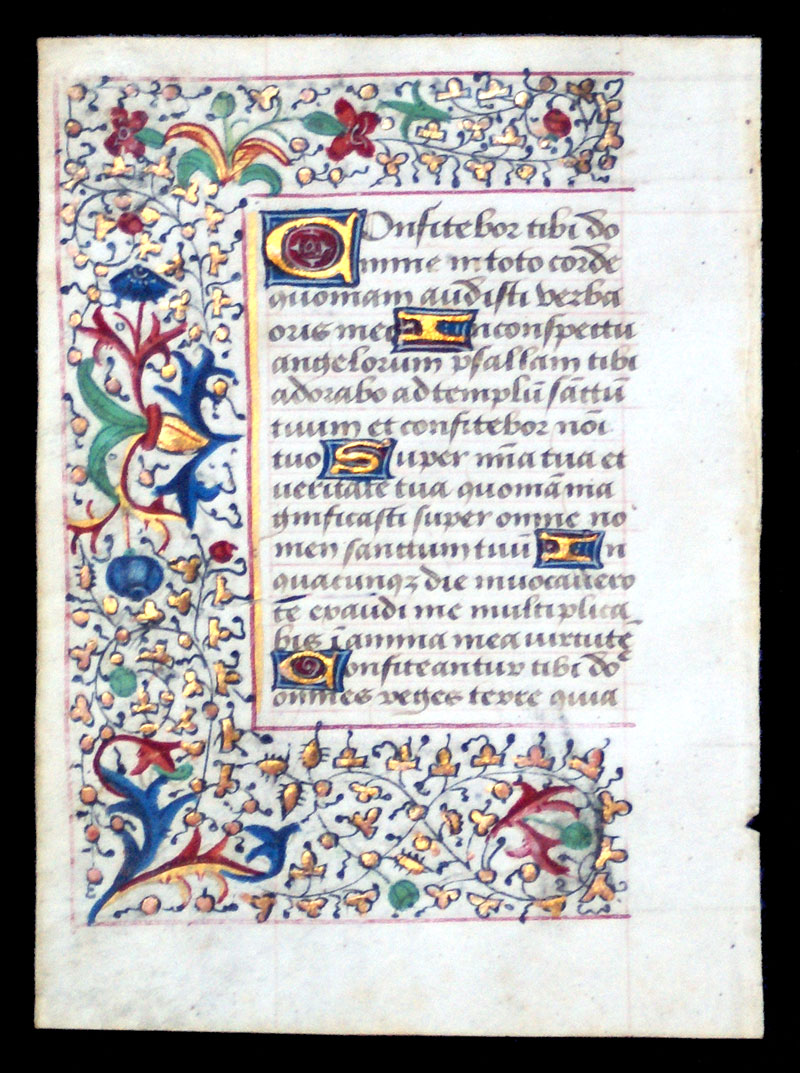 Confitebor tibi do
mine in toto corde
quoniam audisti verba
oris mei In conspectu
angelorum psallam tibi
adorabo ad templū sāctū
tuum et confitebor nōi
tuo Super mīa tua et
veritate tua quoniā ma
gnificasti super omne no
men sanctum tuū In
quacunqꝫ die invocavero
te exaudi me multiplica
bis ī anima mea virtutē
Confiteantur tibi do
omnes reges terre quia